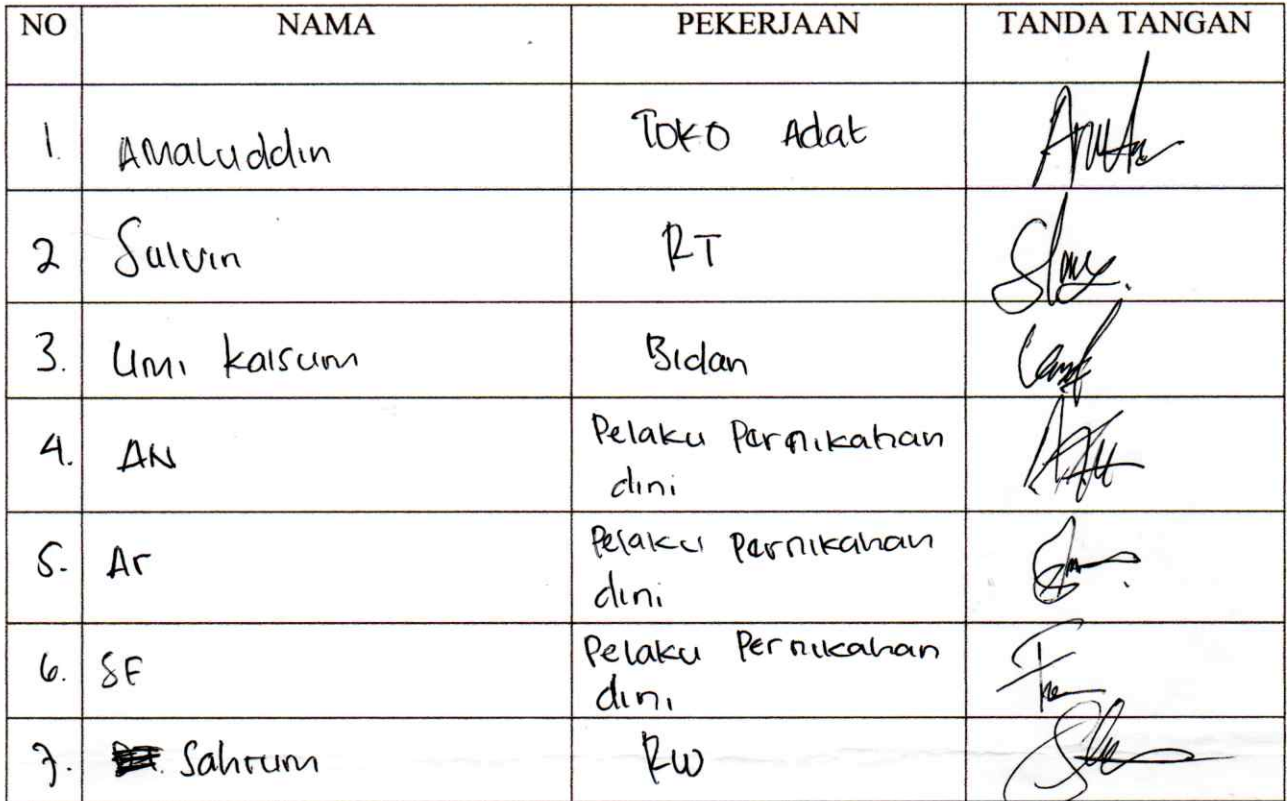 NO NAMA PEKERJAAN TANDA TANGAN
1. Amaluddin Toko Adat
2 Salvin RT
3. Umi kalsum Bidan
4. AN Pelaku Pernikahan
dini
5. Ar Pelaku Pernikahan
dini
6. SF Pelaku Pernikahan
dini
7. Sahrum RW